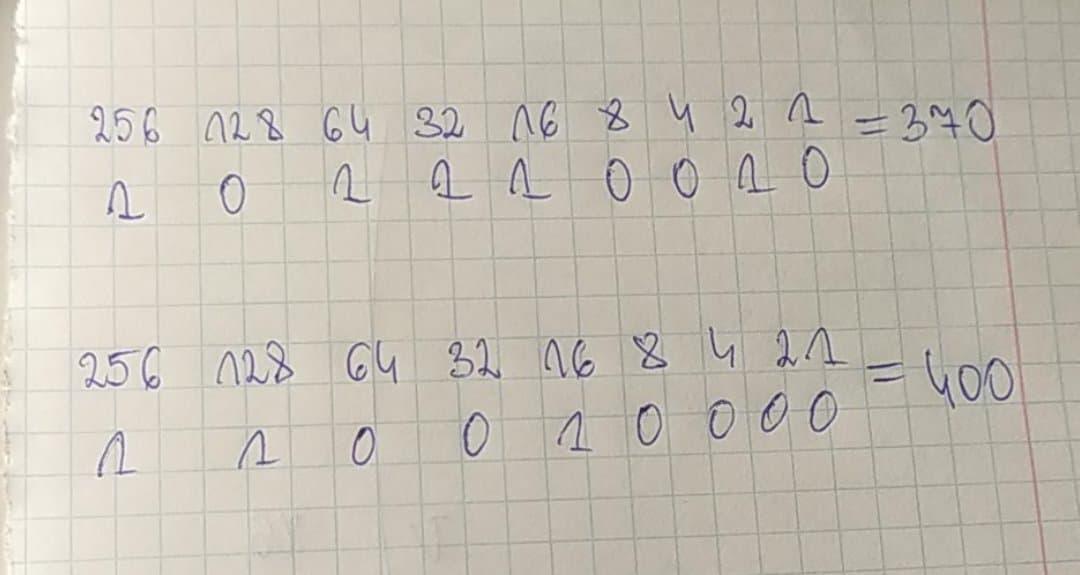 256 128 64 32 16 8 4 2 1 = 370
1 0 1 1 1 0 0 1 0
256 128 64 32 16 8 4 2 1 = 400
1 1 0 0 1 0 0 0 0